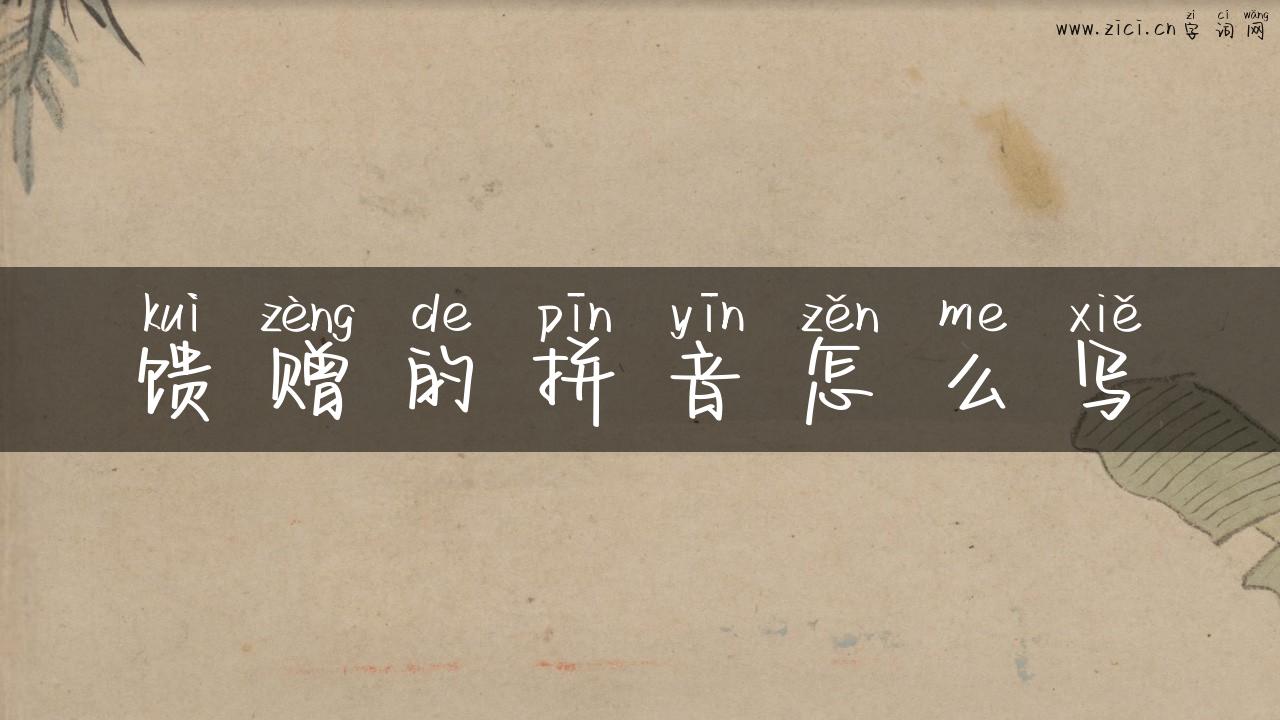 zì cí wǎng
www.zici.cn 字 词 网
kuì zèng de pīn yīn zěn me xiě
馈 赠 的 拼 音 怎 么 写